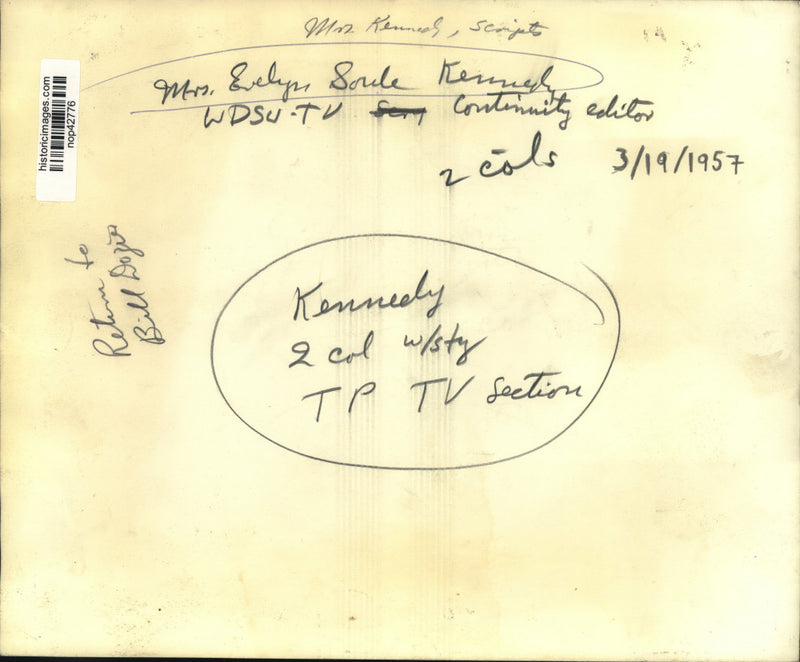 Mrs. Kennedy, scripts
Mrs. Evelyn Soule Kennedy
WDSU-TV Continuity editor
2 cols 3/19/1957
historicimages.com
nop42776
Return to
Bill Dozier
Kennedy
2 col w/sty
TP TV section